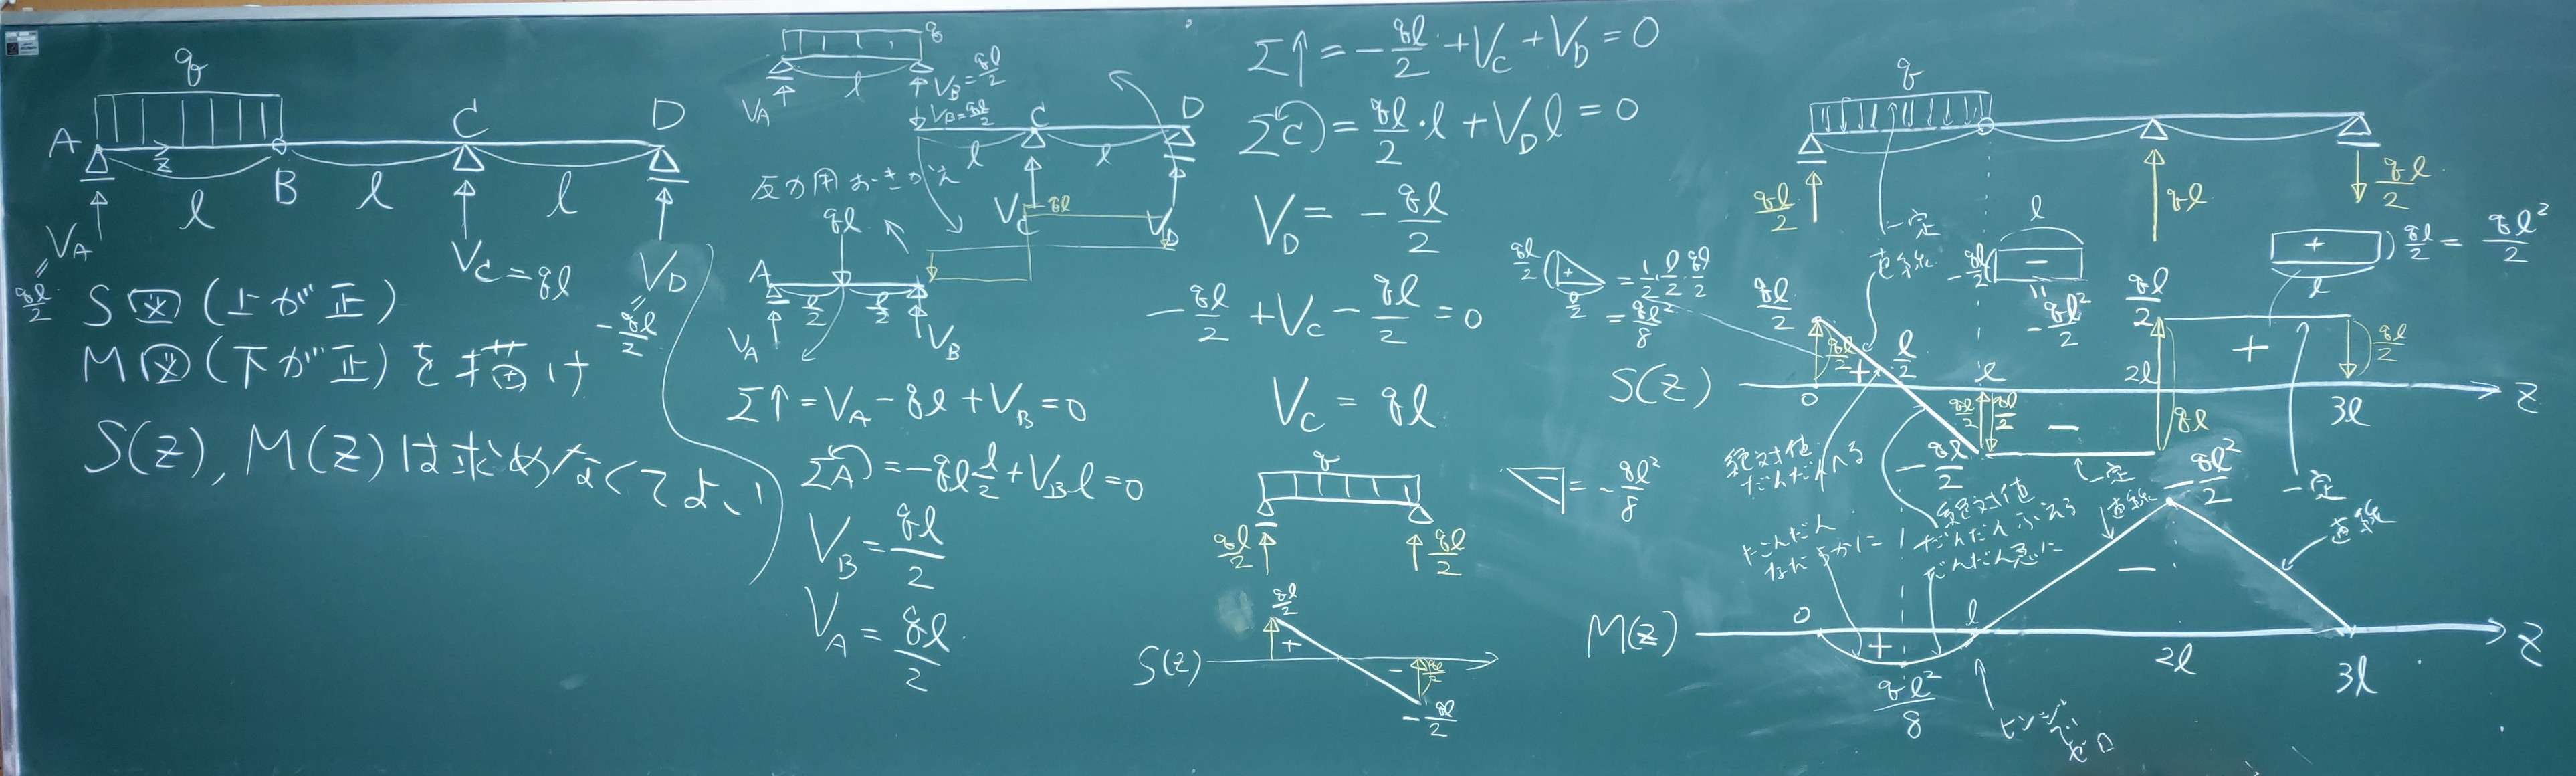 q
A
z
B
C
D
l
l
l
V_A
q l/2
V_C = ql
V_D
-ql/2
S図(上が正)
M図(下が正)を描け
S(z), M(z)は求めなくてよい
q
V_A
l
V_B = ql/2
V_B = ql/2
C
D
l
l
反力用おきかえ
V_C
ql
V_D
ql
A
l/2
l/2
V_A
V_B
Σ↑ = V_A - ql + V_B = 0
ΣA) = -ql l/2 + V_B l = 0
V_B = ql/2
V_A = ql/2
Σ↑ = -ql/2 + V_C + V_D = 0
ΣC) = ql/2・l + V_D l = 0
V_D = -ql/2
-ql/2 + V_C - ql/2 = 0
V_C = ql
q
ql/2
ql/2
ql/2
+
S(z)
-
ql/2
-ql/2
q
ql/2
ql
ql/2
一定
直線
ql/2
+
l/2
= 1/2・l/2・ql/2
= ql²/8
l
-ql/2
-
=
-ql²/2
+
) ql/2 = ql²/2
l
ql/2
ql/2
+
l/2
l
2l
ql/2
+
ql/2
S(z)
0
ql/2
ql/2
-
ql
3l
z
-ql/2
一定
一定
- = -ql²/8
絶対値
だんだんへる
だんだん
なだらかに
絶対値
だんだんふえる
だんだん急に
直線
-ql²/2
直線
-
M(z)
0
+
l
2l
3l
z
ql²/8
ヒンジで
ゼロ